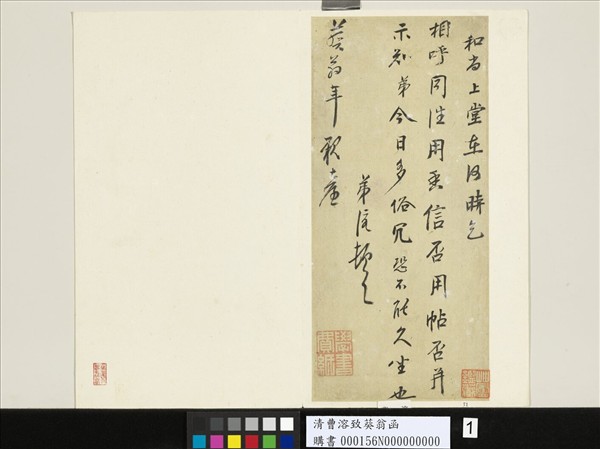 和尚上堂在何時乞
相呼同往用垂信否用帖否并
示知弟今日多俗冗恐不能久坐也
弟溶頓首
葵翁年親臺
11
清曹溶致葵翁函
購書 000156N000000000
1